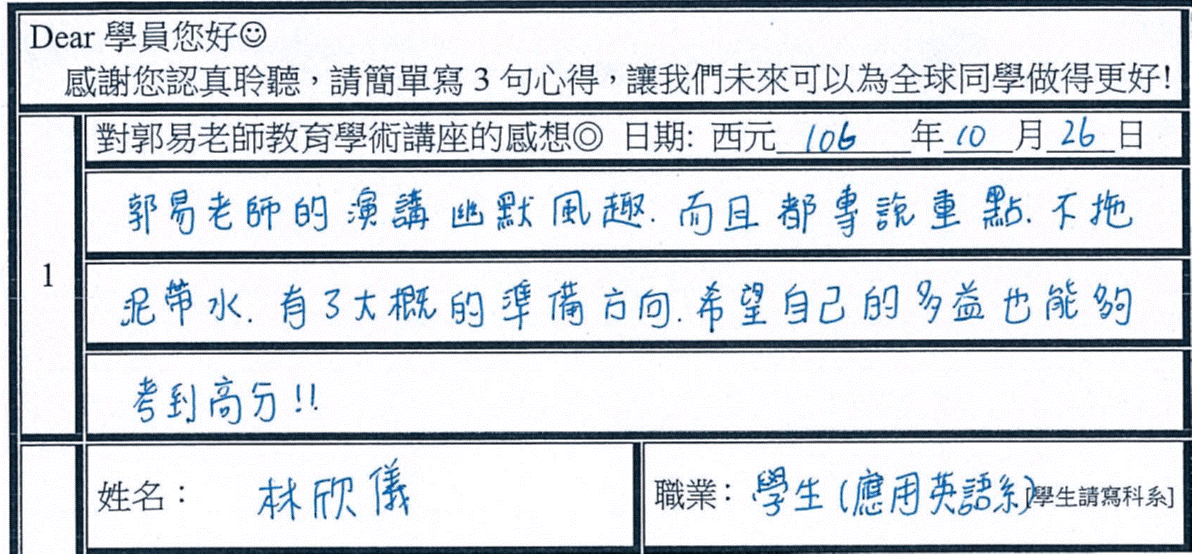 Dear 學員您好☺
感謝您認真聆聽，請簡單寫 3 句心得，讓我們未來可以為全球同學做得更好!
1
對郭易老師教育學術講座的感想◎ 日期: 西元 106 年 10 月 26 日
郭易老師的演講幽默風趣.而且都專說重點.不拖
泥帶水.有了大概的準備方向.希望自己的多益也能夠
考到高分!!
姓名： 林欣儀
職業： 學生(應用英語系)[學生請寫科系]